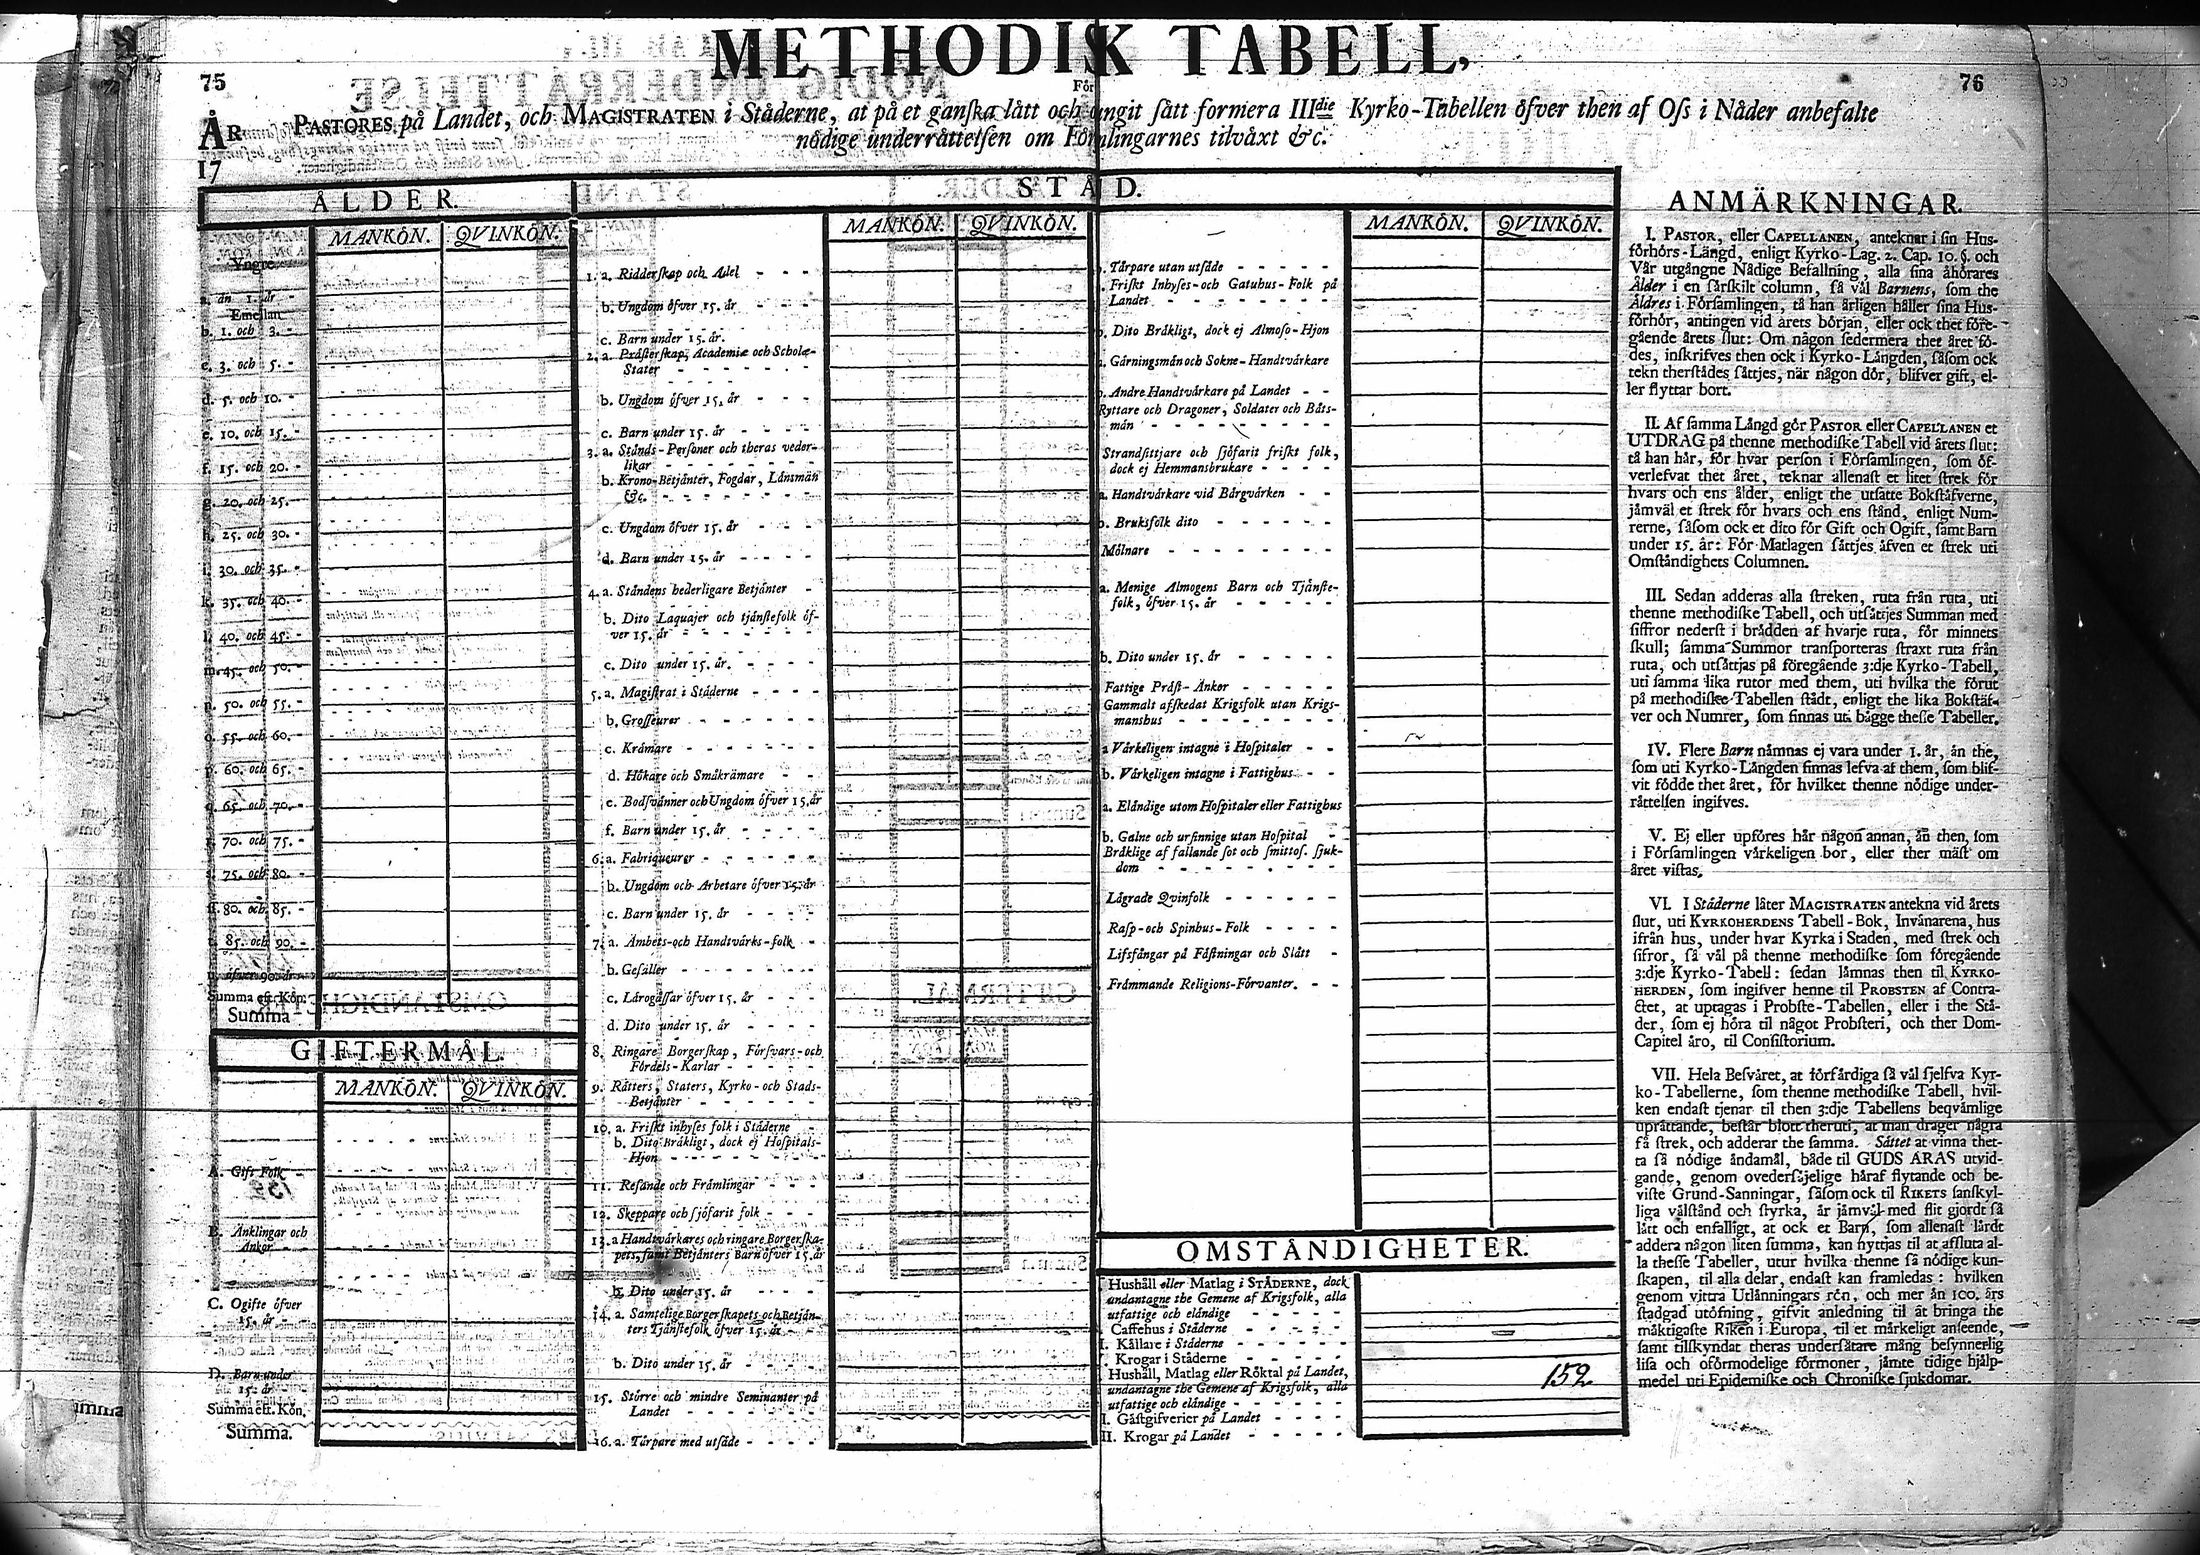 METHODIK TABELL,
75
För
76
PASTORES på Landet, och MAGISTRATEN i Städerne, at på et ganska lått och ungit sått formera IIIdie Kyrko-Tabellen öfver then af Oss i Nåder anbefalte
nödige underråttelsen om Församlingarnes tilvåxt &c.
ÅR
17
ÅLDER.
MANKÖN. QVINKÖN.
Yngre
a. ån 1. år -
Emellan
b. 1. och 3. -
c. 3. och 5. -
d. 5. och 10. -
e. 10. och 15. -
f. 15. och 20. -
g. 20. och 25. -
h. 25. och 30. -
i. 30. och 35. -
k. 35. och 40. -
l. 40. och 45. -
m. 45. och 50. -
n. 50. och 55. -
o. 55. och 60. -
p. 60. och 65. -
q. 65. och 70. -
r. 70. och 75. -
s. 75. och 80. -
ſſ. 80. och 85. -
t. 85. och 90. -
u. öfver 90. år -
Summa eft. Kön.
Summa
GIFTERMÅL.
MANKÖN. QVINKÖN.
A. Gift Folk -
B. Änklingar och
Änkor -
C. Ogifte öfver
15. år -
D. Barn under
15. år
Summa eft. Kön.
Summa.
STÅD.
MANKÖN. QVINKÖN.
1. a. Ridderskap och Adel - - -
b. Ungdom öfver 15. år - - -
c. Barn under 15. år.
2. a. Pråsterskap, Academiæ och Scholæ-
Stater - - - - - -
b. Ungdom öfver 15. år - - -
c. Barn under 15. år - - - -
3. a. Stånds-Personer och theras veder-
likar - - - - - - -
b. Krono-Betjånter, Fogdar, Långsmån
&c. - - - - - - -
c. Ungdom öfver 15. år - - -
d. Barn under 15. år - - - -
4. a. Ståndens hederligare Betjånter -
b. Dito Laquajer och tjånstefolk öf-
ver 15. år - - - - - -
c. Dito under 15. år. - - - -
5. a. Magistrat i Ståderne - - - -
b. Grosseurer - - - - - -
c. Kråmare - - - - - -
d. Hökare och Småkrämare - -
e. Bodsvånner och Ungdom öfver 15. år
f. Barn under 15. år - - - -
6. a. Fabriqueurer - - - - -
b. Ungdom och Arbetare öfver 15. år
c. Barn under 15. år - - - -
7. a. Åmbets-och Handtvårks-folk -
b. Gesäller - - - - - -
c. Lårogåssar öfver 15. år - - -
d. Dito under 15. år - - - -
8. Ringare Borgerskap, Försvars-och
Fördels-Karlar - - - - -
9. Råtters, Staters, Kyrko-och Stads-
Betjånter - - - - - -
10. a. Friskt inhyses folk i Ståderne -
b. Dito Bråkligt, dock ej Hospitals-
Hjon - - - - - - - -
11. Resande och Fråmlingar - - -
12. Skeppare och sjöfarit folk - - -
13. a Handtvårkares och ringare Borgerska-
pets, samt Betjånters Barn öfver 15. år
b. Dito under 15. år - - - -
14. a. Samtelige Borgerskapets och Betjån-
ters Tjånstefolk öfver 15. år - -
b. Dito under 15. år - - - -
15. Större och mindre Seminanter på
Landet - - - - - - -
16. a. Tårpare med utsåde - - - -
MANKÖN. QVINKÖN.
. Tårpare utan utsåde - - - - -
. Friskt Inhyses-och Gatuhus-Folk på
Landet - - - - - - - -
b. Dito Bråkligt, dock ej Almoso-Hjon
a. Gårningsmån och Sokne-Handtvårkare
b. Andre Handtvårkare på Landet - -
Ryttare och Dragoner, Soldater och Båts-
mån - - - - - - - - -
Strandsittjare och sjöfarit friskt folk,
dock ej Hemmansbrukare - - - -
a. Handtvårkare vid Bårgvårken - -
b. Bruksfolk dito - - - - - -
Mölnare - - - - - - - -
a. Menige Almogens Barn och Tjånste-
folk, öfver 15. år - - - - -
b. Dito under 15. år - - - - -
Fattige Pråst-Änkor - - - - -
Gammalt afskedat Krigsfolk utan Krigs-
manshus - - - - - - - -
a Vårkeligen intagne i Hospitaler - -
b. Vårkeligen intagne i Fattighus - -
a. Elåndige utom Hospitaler eller Fattighus
b. Galne och ursinnige utan Hospital -
Bråklige af fallande sot och smittos. sjuk-
dom - - - - - - - - -
Lågrade Qvinfolk - - - - -
Rasp-och Spinhus-Folk - - - -
Lifsfångar på Fåstningar och Slått -
Fråmmande Religions-Förvanter. - -
OMSTÅNDIGHETER.
Hushåll eller Matlag i STÅDERNE, dock
undantagne the Gemene af Krigsfolk, alla
utfattige och elåndige - - - - -
Caffehus i Ståderne - - - - -
Kållare i Ståderne - - - - -
Krogar i Ståderne - - - - -
Hushåll, Matlag eller Röktal på Landet,
undantagne the Gemene af Krigsfolk, alla
utfattige och elåndige - - - - -
152
I. Gåstgifverier på Landet - - - -
II. Krogar på Landet - - - - -
ANMÄRKNINGAR.
I. PASTOR, eller CAPELLANEN, anteknar i sin Hus-
förhörs-Långd, enligt Kyrko-Lag. 2. Cap. 10. §. och
Vår utgångne Nådige Befallning, alla sina åhörares
Ålder i en sårskilt column, så vål Barnens, som the
Åldres i Församlingen, tå han årligen håller sina Hus-
förhör, antingen vid årets början, eller ock thet före-
gående årets slut: Om någon sedermera thet året fö-
des, inskrifves then ock i Kyrko-Långden, såsom ock
tekn therstådes såttjes, når någon dör, blifver gift, el-
ler flyttar bort.
II. Af samma Långd gör PASTOR eller CAPELLANEN et
UTDRAG på thenne methodiske Tabell vid årets slut:
tå han hår, för hvar person i Församlingen, som öf-
verlefvat thet året, teknar allenast et litet strek för
hvars och ens ålder, enligt the utsatte Bokståfverne,
jåmvål et strek för hvars och ens stånd, enligt Num-
rerne, såsom ock et dito för Gift och Ogift, samt Barn
under 15. år: För Matlagen såttjes åfven et strek uti
Omståndighets Columnen.
III. Sedan adderas alla streken, ruta från ruta, uti
thenne methodiske Tabell, och utsåttjes Summan med
siffror nederst i brådden af hvarje ruta, för minnets
skull; samma Summor transporteras straxt ruta från
ruta, och utsåttjas på föregående 3:dje Kyrko-Tabell,
uti samma lika rutor med them, uti hvilka the förut
på methodiske Tabellen stådt, enligt the lika Bokståf-
ver och Numrer, som finnas uti bågge thesse Tabeller.
IV. Flere Barn nåmnas ej vara under 1. år, ån the,
som uti Kyrko-Långden finnas lefva af them, som blif-
vit födde thet året, för hvilket thenne nödige under-
råttelsen ingifves.
V. Ej eller upföres hår någon annan, ån then, som
i Församlingen vårkeligen bor, eller ther måst om
året vistas.
VI. I Ståderne låter MAGISTRATEN antekna vid årets
slut, uti KYRKOHERDENS Tabell-Bok, Invånarena, hus
ifrån hus, under hvar Kyrka i Staden, med strek och
sifror, så vål på thenne methodiske som föregående
3:dje Kyrko-Tabell: sedan låmnas then til KYRKO-
HERDEN, som ingifver henne til PROBSTEN af Contra-
ctet, at uptagas i Probste-Tabellen, eller i the Stå-
der, som ej höra til något Probsteri, och ther Dom-
Capitel åro, til Consistorium.
VII. Hela Besvåret, at förfårdiga så vål sjelfva Kyr-
ko-Tabellerne, som thenne methodiske Tabell, hvil-
ken endast tjenar til then 3:dje Tabellens beqvåmlige
upråttande, består blott theruti, at man drager några
få strek, och adderar the samma. Såttet at vinna thet-
ta så nödige åndamål, både til GUDS ÅRAS utvid-
gande, genom ovedersåjelige håraf flytande och be-
viste Grund-Sanningar, såsom ock til RIKETS sanskyl-
liga vålstånd och styrka, år jåmvål med flit gjordt så
lått och enfalligt, at ock et Barn, som allenast lårdt
addera någon liten summa, kan nyttjas til at affluta al-
la thesse Tabeller, utur hvilka thenne så nödige kun-
skapen, til alla delar, endast kan framledas: hvilken
genom vittra Utlånningars rön, och mer ån 100. års
stadgad utöfning, gifvit anledning til åt bringa the
måktigaste Riken i Europa, til et mårkeligt anseende,
samt tilskyndat theras undersåtare mång besynnerlig
lisa och oförmodelige förmoner, jåmte tidige hjålp-
medel uti Epidemiske och Chroniske sjukdomar.